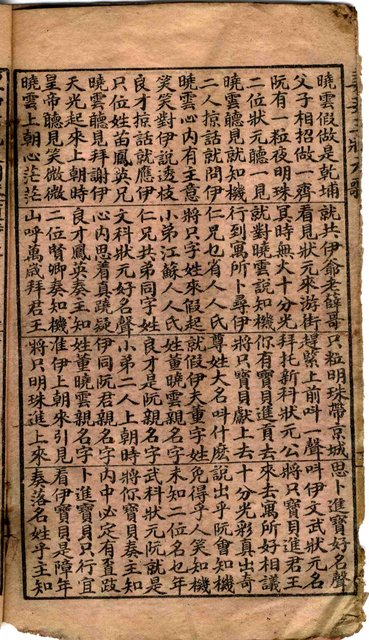 曉雲假做是乾埔 就共伊爺老薛哥 只粒明珠帶京城 思卜進寶好名聲
父子相招做一齊 看見狀元來游街 趕緊上前叫一聲 叫伊文武狀元名
阮有一粒夜明珠 其時無大十分光 拜托新科狀元公 將只寶貝進君王
二位狀元聽一見 就對曉雲說知機 你有寶貝進貢去 來去寓所好相議
曉雲聽見就知機 行到寓所卜尋伊 將只寶貝獻上去 十分光彩真出奇
二人掠話就問伊 仁兄乜有人人氏 尊姓大名叫什麼 說出乎阮會知機
曉雲心內有主意 將只字姓來假起 就假伊夫董字姓 免得乎人笑知機
笑笑對伊說透枝 小弟江蘇人人氏 姓董曉雲親名字 未知二位名乜年
良才掠話就應伊 仁兄共弟同字姓 良才是阮親名字 武科狀元阮就是
只位姓苗鳳英兄 文科狀元好名聲 小弟二人上朝時 將你寶貝奏主知
曉雲聽見拜謝伊 心內思着真疑 伊同阮君親名字 內中必定有蹺跂
天光起來上朝時 良才鳳英奏主知 姓董曉雲親名字 卜進寶貝只行宜
皇帝聽見笑微微 二位賢卿奏知機 准伊上朝來引見 看伊寶貝是障年
曉雲上朝心茫茫 山呼萬歲拜君王 將只明珠進上來 奏落名姓乎主知